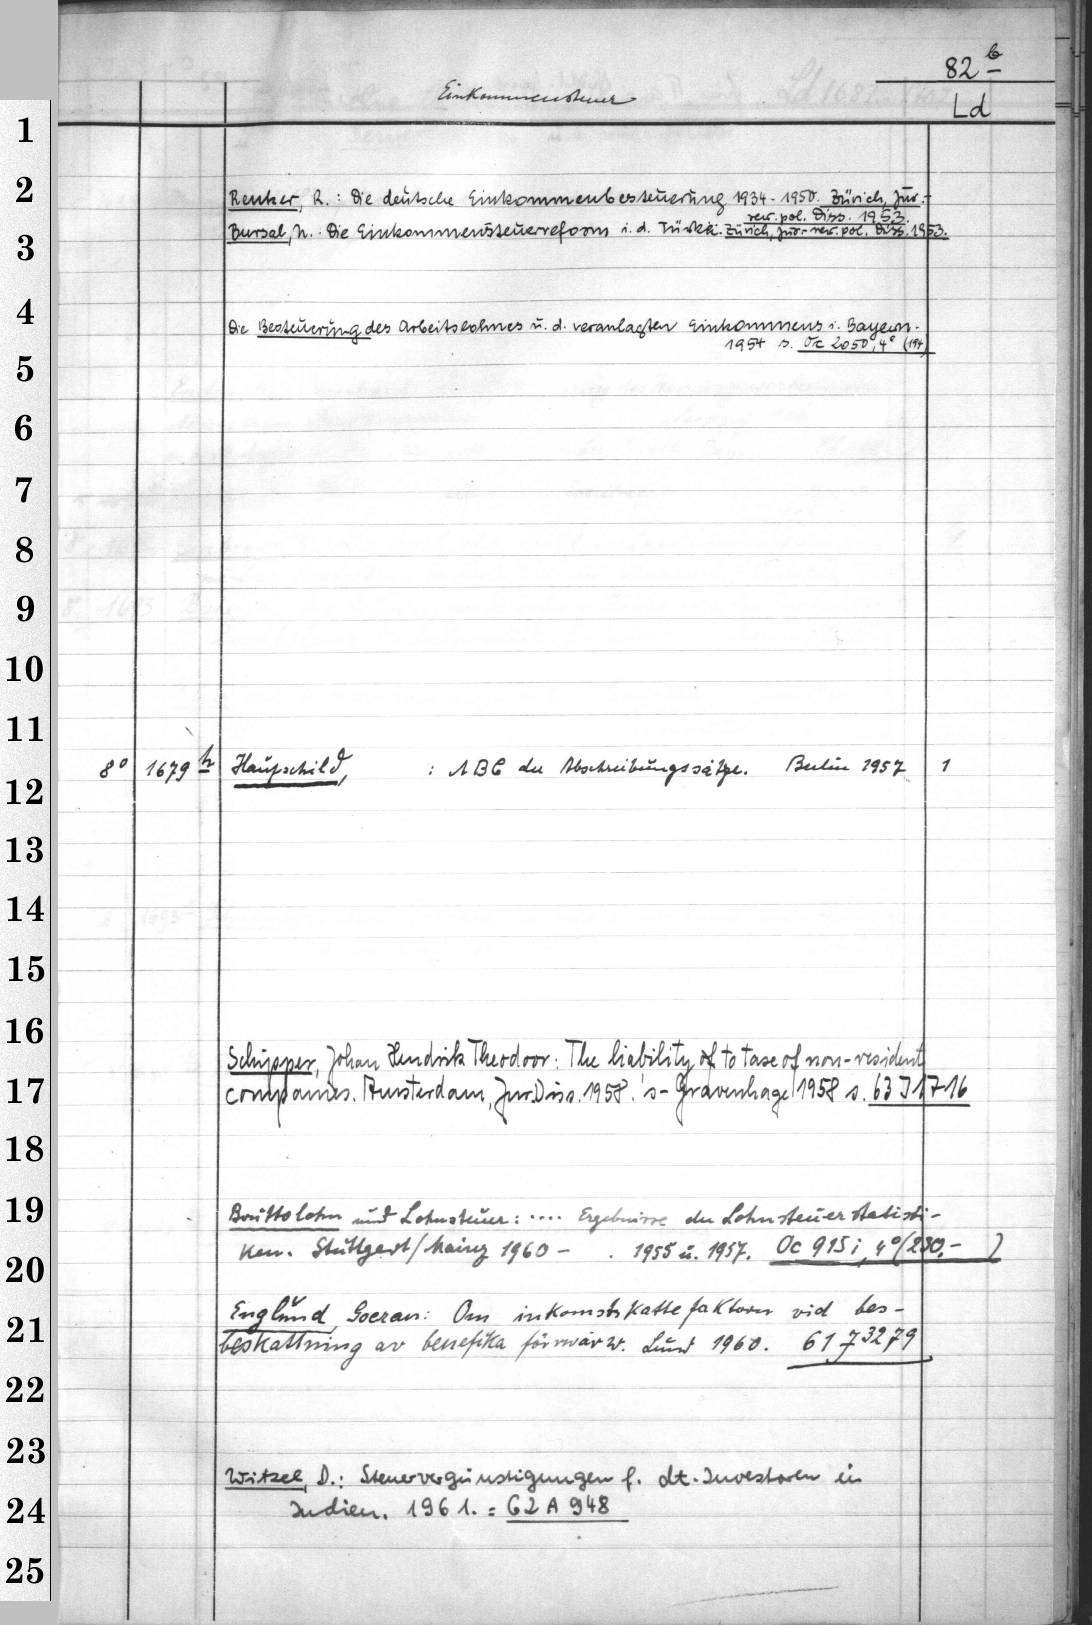 82 b
Einkommensteuer
Ld
1
2
Renker, R.: Die deutsche Einkommenbesteuerung 1934-1950. Zürich, Jur.-
rer. pol. Diss. 1953.
3
Bursal, N. Die Einkommensteuerreform i. d. Türkei. Zürich, Jur.-rer. pol. Diss. 1953.
4
Die Besteuerung des Arbeitslohnes u. d. veranlagten Einkommens i. Bayern.
1954 s. Oc 2050, 4° (194)
5
6
7
8
9
10
11
8° 1679 h Hauschild, : ABC der Abschreibungssätze. Berlin 1957 1
12
13
14
15
16
Schipper, Johan Hendrik Theodoor: The liability of to taxe of non-resident
17
companies. Amsterdam, Jur. Diss. 1958. 's-Gravenhage 1958 s. 63 J 17 16
18
19
Bruttolohn und Lohnsteuer: .... Ergebnisse der Lohnsteuerstatisti-
ken. Stuttgart/Mainz 1960 - . 1955 u. 1957. Oc 915i, 4° (230,- )
20
Englund Goeran: Om inkomstskattefaktorn vid bes-
21
beskattning av benefika förvärv. Lund 1960. 61 7 3279
22
23
Witzel, D.: Steuervergünstigungen f. dt. Investoren in
24
Indien. 1961. = 62 A 948
25